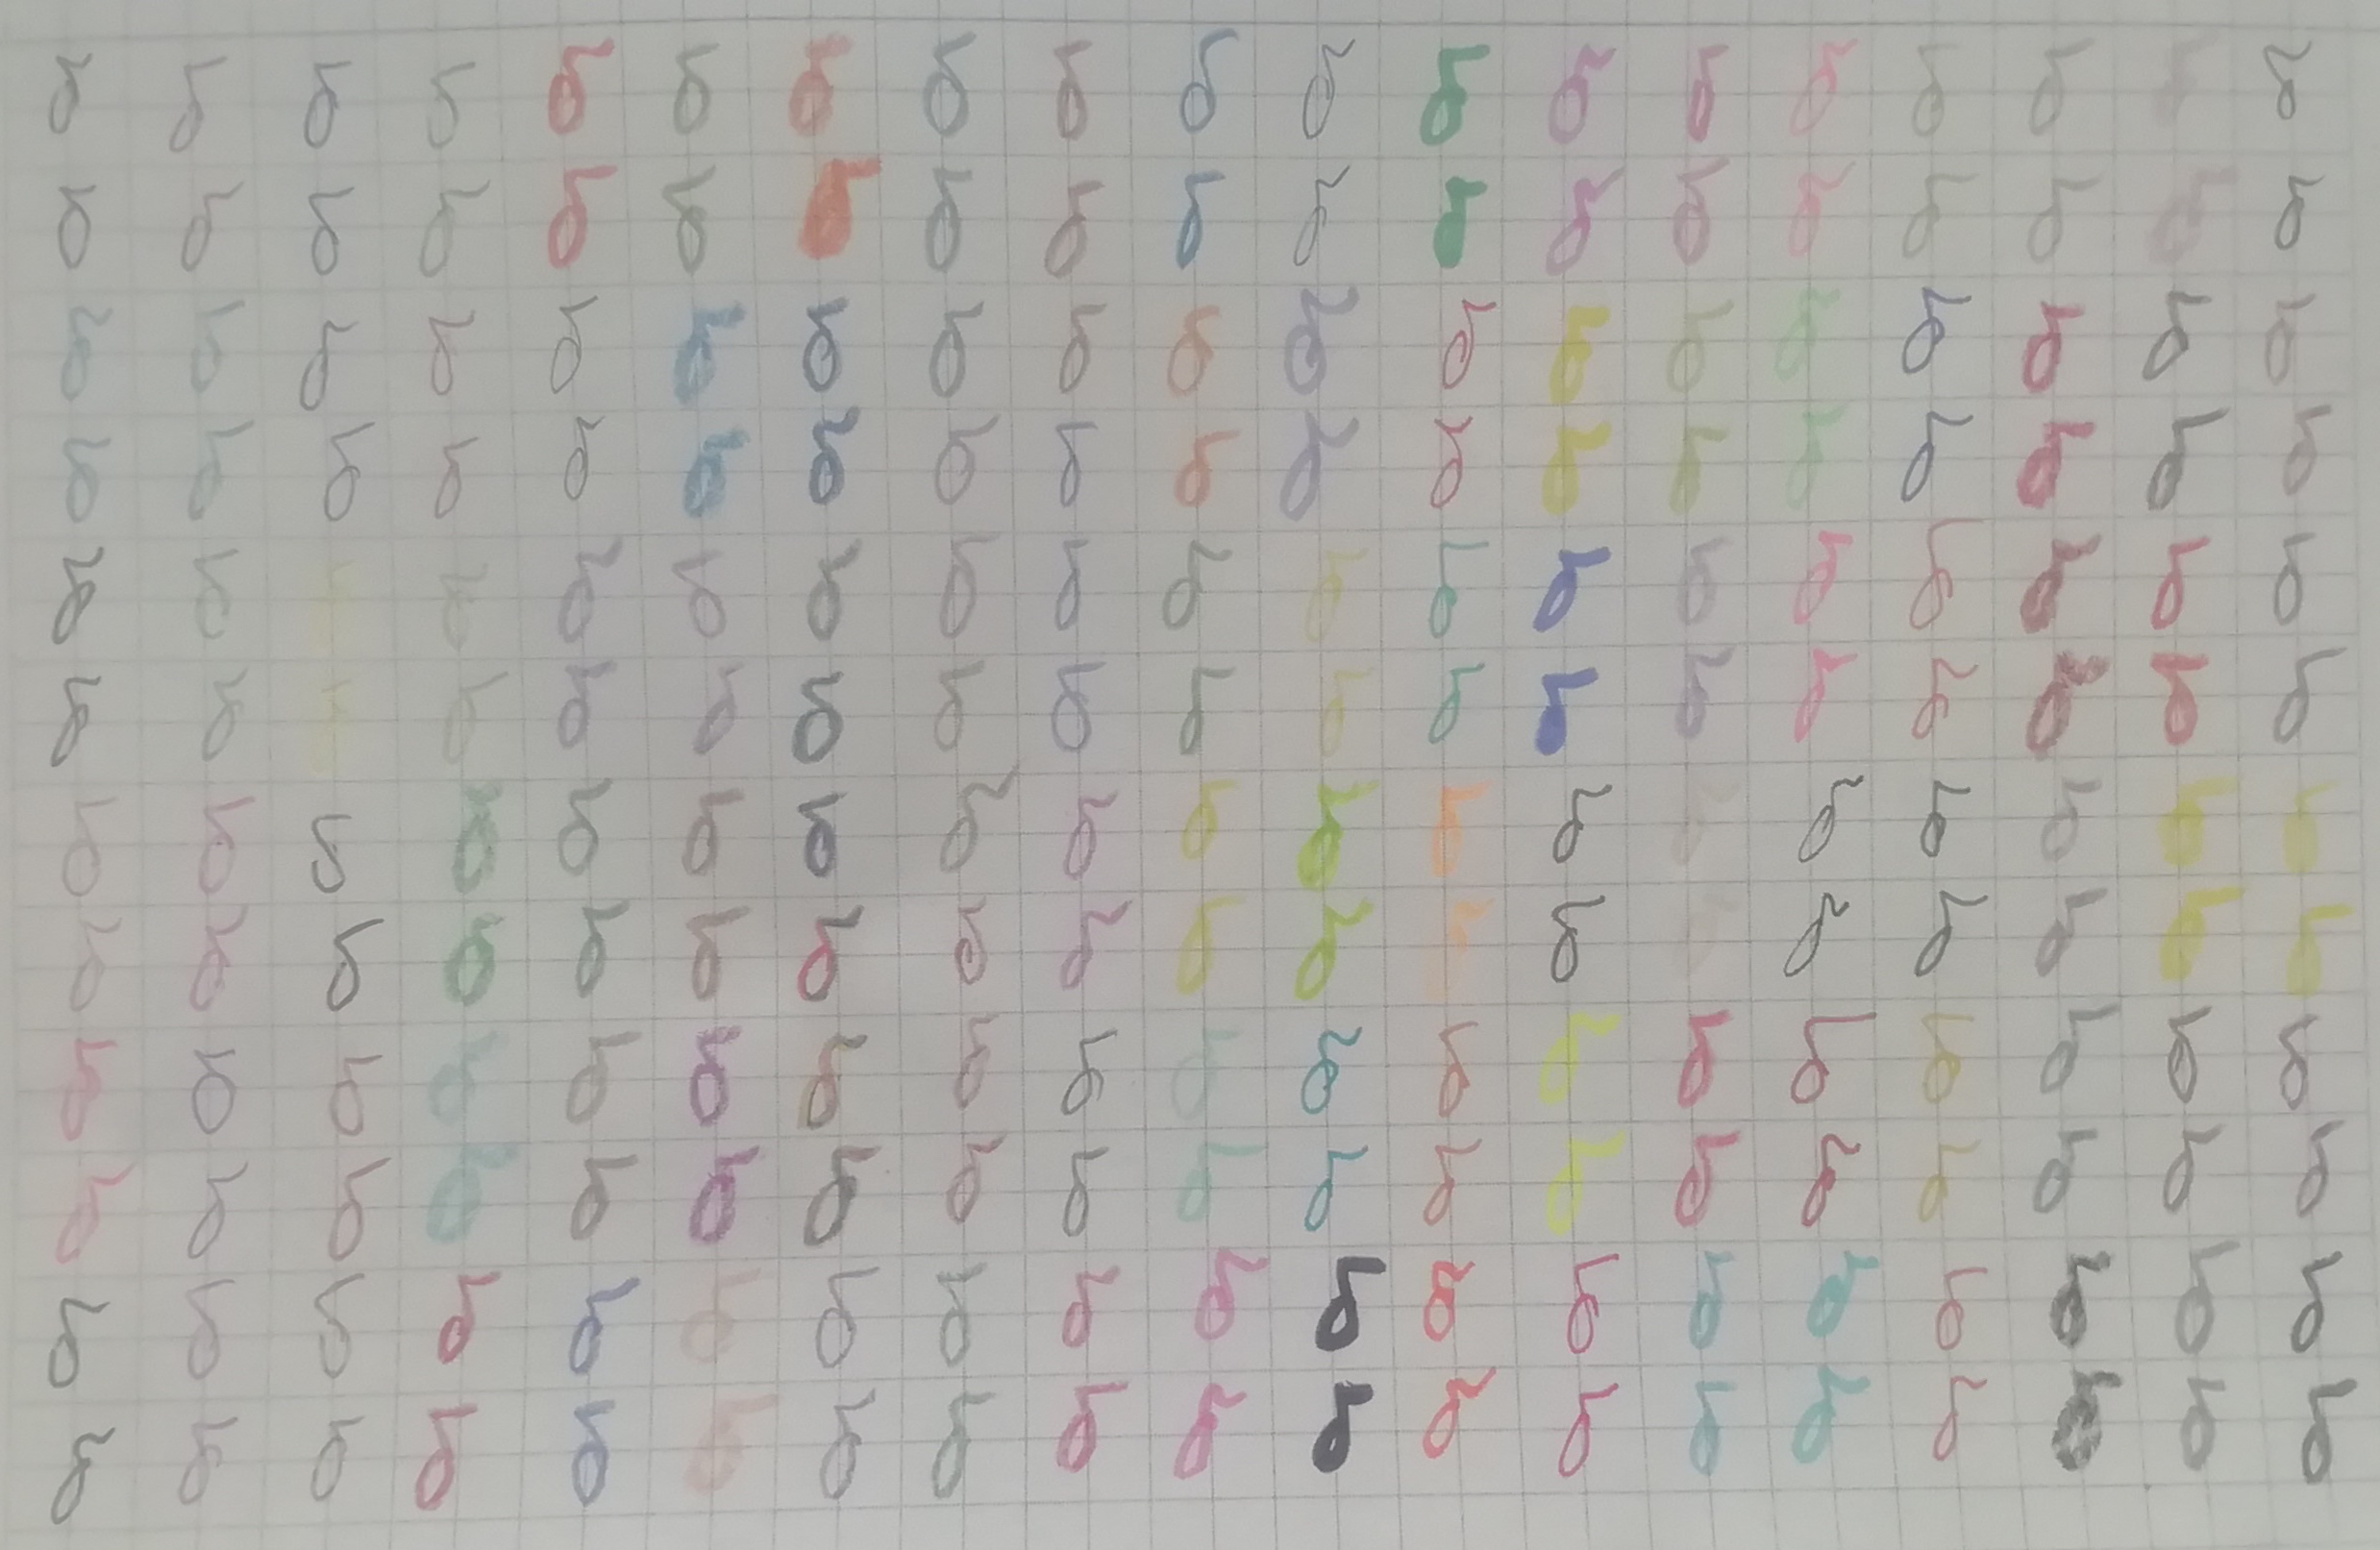 б б б б б б б б б б б б б б б б б б б
б б б б б б б б б б б б б б б б б б б
б б б б б б б б б б б б б б б б б б б
б б б б б б б б б б б б б б б б б б б
б б б б б б б б б б б б б б б б б б б
б б б б б б б б б б б б б б б б б б б
б б б б б б б б б б б б б б б б б б б
б б б б б б б б б б б б б б б б б б б
б б б б б б б б б б б б б б б б б б б
б б б б б б б б б б б б б б б б б б б
б б б б б б б б б б б б б б б б б б б
б б б б б б б б б б б б б б б б б б б